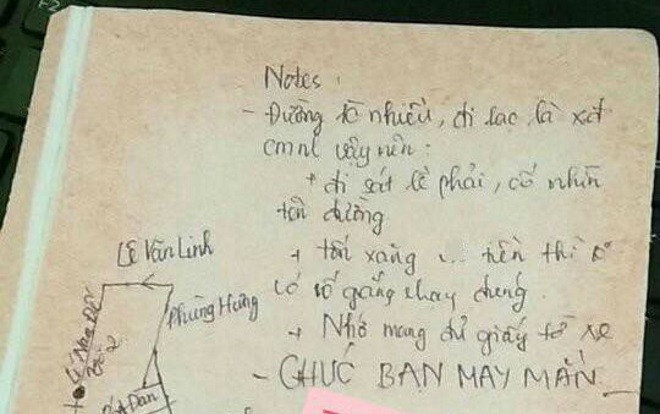 F2
Notes:
- Đường tò nhiều, đi lạc là xát
cmnl vậy nên:
+ đi sát lề phải, cố nhìn
tên đường
+ tốn xăng ... tiền thì
có cố gắng chạy
+ Nhớ mang đủ giấy tờ xe
- CHÚC BẠN MAY MẮN
Lê Văn Linh
Phùng Hưng